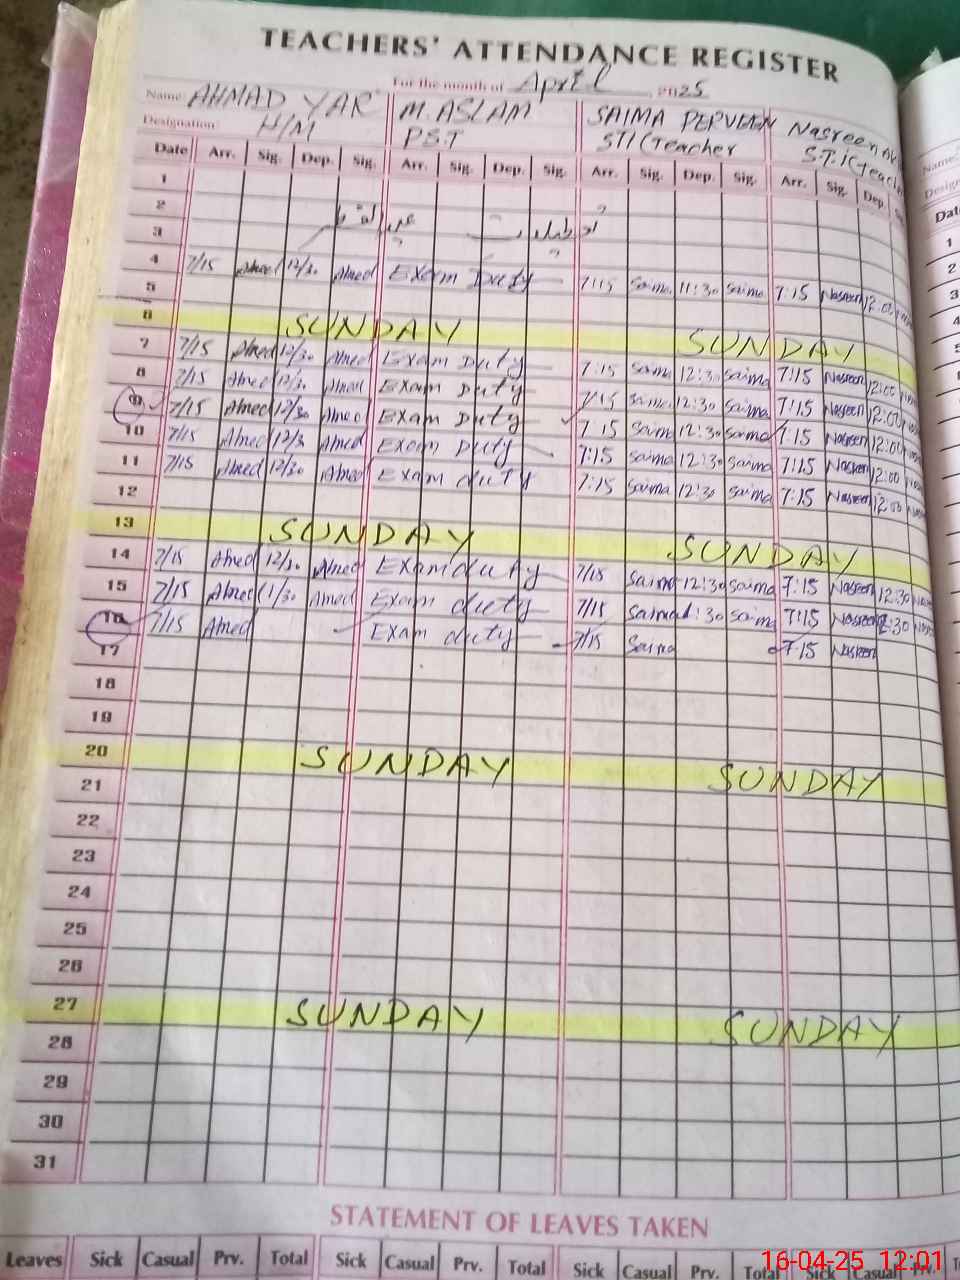 TEACHERS' ATTENDANCE REGISTER
For the month of April, 2025
Name: AHMAD YAR M. ASLAM SAIMA PERVEEN Nasreen
Designation H/M P.S.T STI (Teacher S.T.I (Teach
Date Arr. Sig. Dep. Sig. Arr. Sig. Dep. Sig. Arr. Sig. Dep. Sig. Arr. Sig. Dep
1
2
3
4
5 7/15 Ahmed 12/30 Ahmed Exam Duty 7:15 Saima 11:30 Saima 7:15 Nasreen 12:00
6 SUNDAY SUNDAY
7 7/15 Ahmed 12/30 Ahmed Exam Duty 7:15 Saima 12:30 Saima 7:15 Nasreen 12:00
8 7/15 Ahmed 12/30 Ahmed Exam Duty 7:15 Saima 12:30 Saima 7:15 Nasreen 12:00
9 7/15 Ahmed 12/30 Ahmed Exam Duty 7:15 Saima 12:30 Saima 7:15 Nasreen 12:00
10 7/15 Ahmed 12/3 Ahmed Exam Duty 7:15 Saima 12:30 Saima 7:15 Nasreen 12:00
11 7/15 Ahmed 12/30 Ahmed Exam duty 7:15 Saima 12:30 Saima 7:15 Nasreen 12:00
12
13 SUNDAY SUNDAY
14 7/15 Ahmed 12/30 Ahmed Exam duty 7/15 Saima 12:30 Saima 7:15 Nasreen 12:30
15 7/15 Ahmed 1/30 Ahmed Exam duty 7/15 Saima 1:30 Saima 7:15 Nasreen
16 7/15 Ahmed Exam duty 7/15 Saima 7:15 Nasreen
17
18
19
20 SUNDAY SUNDAY
21
22
23
24
25
26
27 SUNDAY SUNDAY
28
29
30
31
STATEMENT OF LEAVES TAKEN
Leaves Sick Casual Prv. Total Sick Casual Prv. Total Sick Casual Prv. Total Sick Casual Prv.
16-04-25 12:01
Name:
Date
1
2
3
4